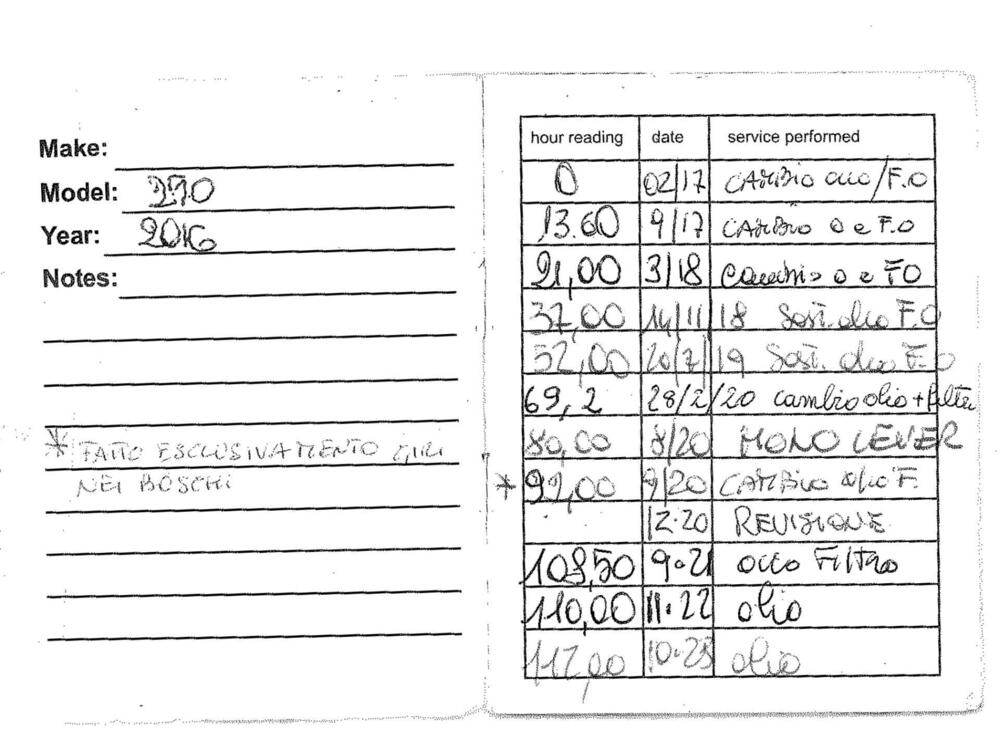 Make:
Model: 250
Year: 2016
Notes:
* FATTO ESCLUSIVAMENTO GIRI
NEI BOSCHI
hour reading date service performed
0 02/17 CAMBIO OLIO/F.O
13.60 9/17 CAMBIO O e F.O
21,00 3/18 Cambio O e FO
37,00 14/11/18 Sost. olio F.O
52,00 20/7/19 Sost. olio F.O
69,2 28/2/20 cambio olio + filtri
80,00 8/20 MONO LEVER
* 92,00 9/20 CAMBIO olio F.
12.20 REVISIONE
108,50 9.21 OLIO Filtro
110,00 11.22 olio
117,00 10.23 olio